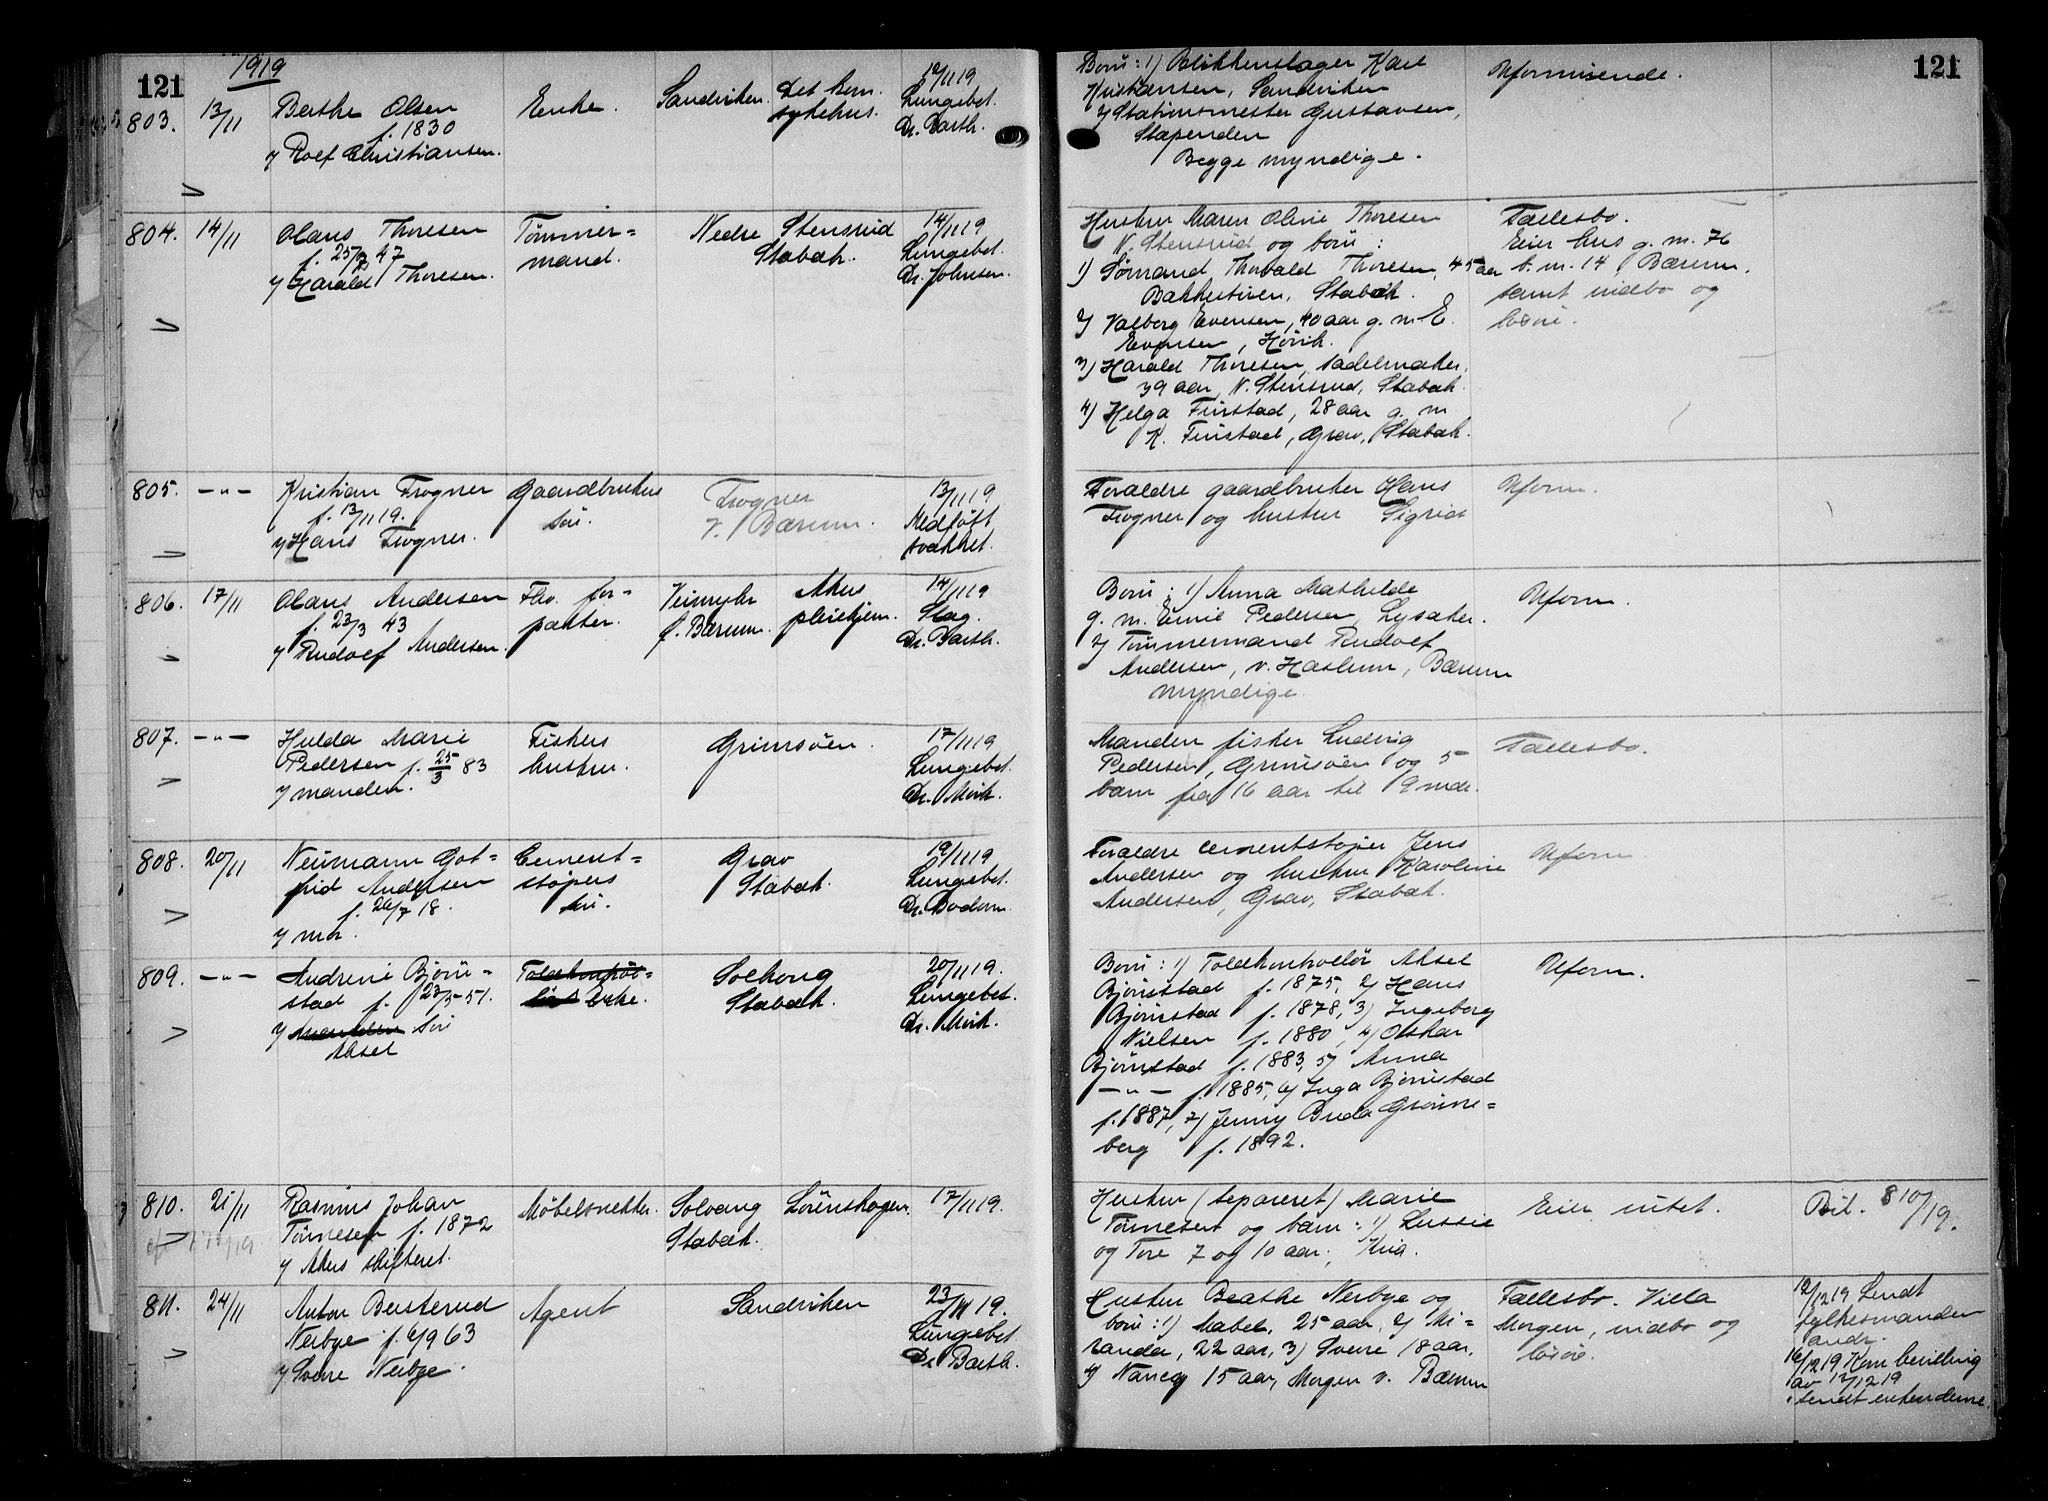 121
1919
121
803.
13/11
Berthe Olsen
f. 1830
v/ Rolf Christiansen.
Enke.
Sandviken.
Det kom.
sykehus.
12/11 19
Lungebet.
Dr. Barth.
Børn: 1) Blikkenslager Karl
Kristiansen, Sandviken
2) Stationsmester Gustavsen,
Slependen
Begge myndige.
Uformuende.
804.
14/11
Olaus Thoresen
f. 25/2 47
v/ Harald Thoresen.
Tømmer=
mand.
Nedre Stensrud
Stabæk.
14/11 19
Lungebet.
Dr. Johnsen.
Hustru Maren Oline Thoresen
N. Stensrud og børn:
1) Sømand Thorvald Thoresen, 45 aar
Bakkestuen, Stabæk.
2) Valborg Evensen, 40 aar g. m. E.
Evensen, Høvik.
3) Harald Thoresen, sadelmaker,
39 aar, N. Stensrud, Stabæk.
4) Helga Finstad, 28 aar g. m
K. Finstad, Grav, Stabæk.
Fællesbo.
Eier hus g. m. 76
b. m. 14, Bærum.
samt indbo og
løsøre.
805.
— " —
Kristian Frogner
f. 13/11 19.
v/ Hans Frogner.
Gaardbrukers
søn.
Frogner
V. Bærum.
13/11 19
Medfødt
svakhet.
Forældre gaardbruker Hans
Frogner og hustru Sigrid
Uform.
806.
17/11
Olaus Andersen
f. 23/3 43
v/ Rudolf Andersen.
Fhv. for=
pakter.
Veimyhr
Ø. Bærum.
Akers
pleiehjem.
14/11 19
Slag.
Dr. Barth.
Børn: 1) Anna Mathilde
g. m. Emil Pedersen, Lysaker.
2) Tømmermand Rudolf
Andersen, v. Haslum, Bærum
myndige.
Uform.
807.
— " —
Hulda Marie
Pedersen f. 25/3 83
v/ manden.
Fiskers
hustru.
Grimsøen.
17/11 19
Lungebet.
Dr. Mørk.
Manden fisker Ludvig
Pedersen, Grimsøen og 5
barn fra 16 aar til 9 mdr.
Fællesbo.
808.
20/11
Neumann Got=
frid Andersen
f. 26/7 18.
v/ mor.
Cement=
støpers
søn.
Grav
Stabæk.
19/11 19
Lungebet.
Dr. Bodom.
Forældre cementstøper Jens
Andersen og hustru Karoline
Andersen, Grav, Stabæk.
Uform
809.
— " —
Andrine Bjørn=
stad f. 23/5 51.
v/ manden søn
Aksel
Toldkontrol=
lørs Enke.
Solhaug
Stabæk.
20/11 19.
Lungebet.
Dr. Mørk.
Børn: 1) Toldkontrollør Aksel
Bjørnstad f. 1875, 2) Hans
Bjørnstad f. 1878, 3) Ingeborg
Nielsen f. 1880, 4) Oskar
Bjørnstad f. 1883, 5) Anna
— " — f. 1885, 6) Inga Bjørnstad
f. 1887, 7) Jenny Buda Grønne=
berg f. 1892.
Uform.
810.
21/11
Rasmus Johan
Tønnesen f. 1872
v/ Akers skifteret.
Møbelsnekker.
Solvang
Stabæk.
Lørenskogen.
17/11 19.
Hustru (separeret) Marie
Tønnesen og barn: 1) Lussie
og Tore 7 og 10 aar, Kria.
Eier intet.
Bil. 810/19.
811.
24/11
Anton Beisterud
Nerbye f. 6/9 63
v/ Sverre Nerbye.
Agent
Sandviken
23/11 19.
Lungebet.
Dr Barth.
Hustru Beathe Nerbye og
børn: 1) Mabel, 25 aar, 2) Mi=
randa, 22 aar, 3) Sverre 18 aar,
4) Nancy 15 aar, Morgen v. Bærum
Fællesbo. Villa
Morgen, indbo og
løsøre.
12/12 19 Sendt
fylkesmanden
andr.
16/12 19 Kom bevilling
av 13/12 19
sendt enkenderne.